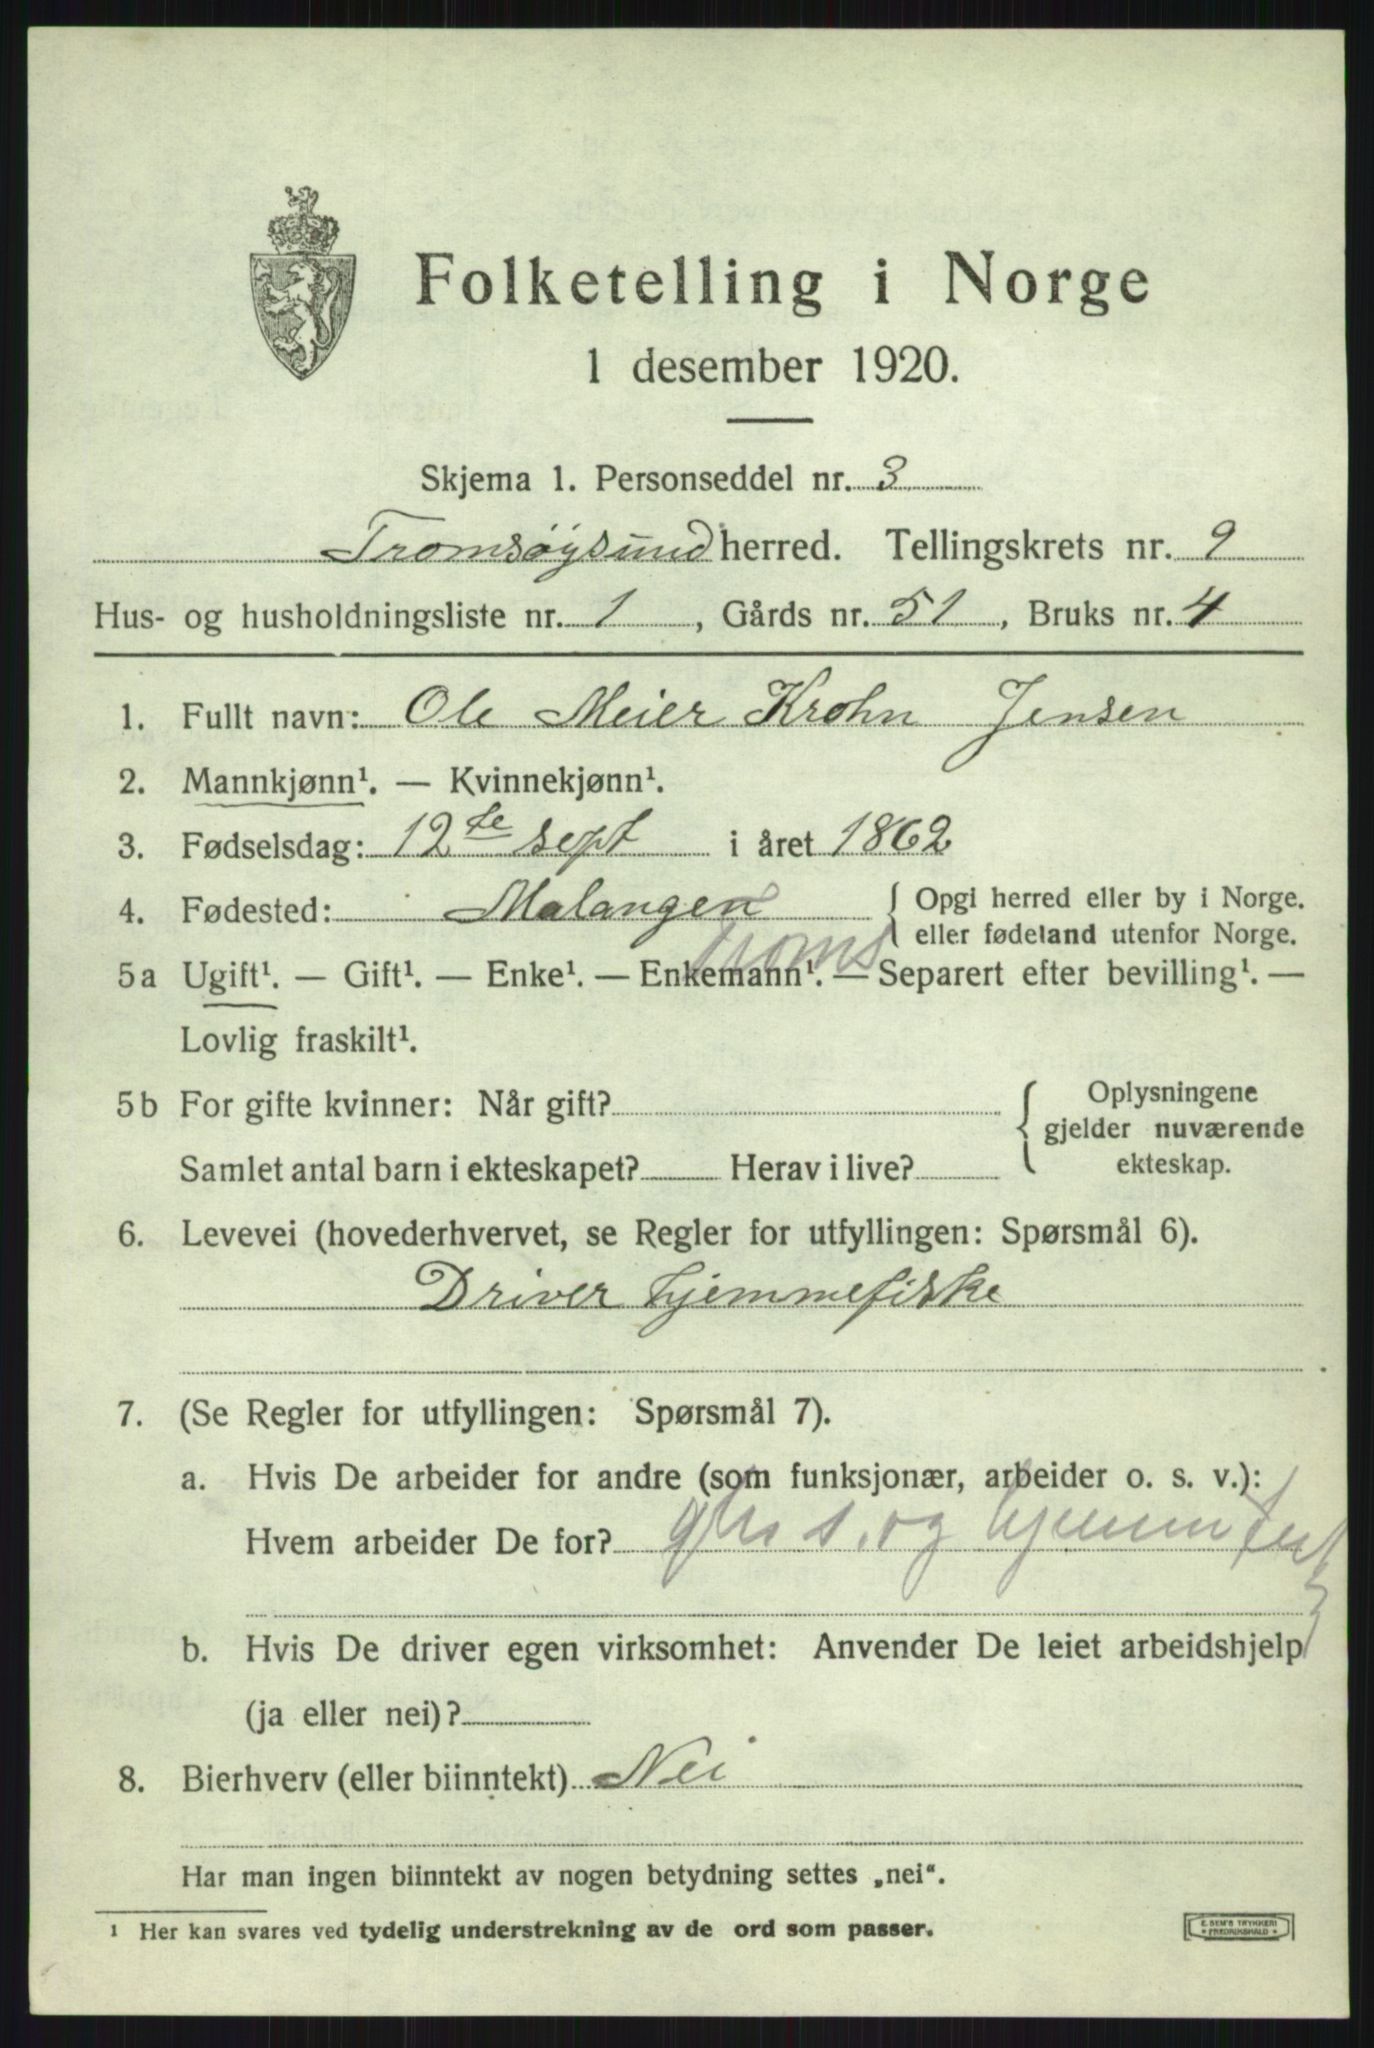 Folketelling i Norge
1 desember 1920.
Skjema 1. Personseddel nr. 3
Tromsøysund herred. Tellingskrets nr. 9
Hus- og husholdningsliste nr. 1, Gårds nr. 51, Bruks nr. 4
1. Fullt navn: Ole Meier Krohn Jensen
2. Mannkjønn¹. — Kvinnekjønn¹.
3. Fødselsdag: 12te sept i året 1862
4. Fødested: Malangen { Opgi herred eller by i Norge.
eller fødeland utenfor Norge.
Troms
5a Ugift¹. — Gift¹. — Enke¹. — Enkemann¹. — Separert efter bevilling¹. —
Lovlig fraskilt¹.
5b For gifte kvinner: Når gift? { Oplysningene
gjelder nuværende
Samlet antal barn i ekteskapet? Herav i live? ekteskap.
6. Levevei (hovederhvervet, se Regler for utfyllingen: Spørsmål 6).
Driver hjemmefiske
7. (Se Regler for utfyllingen: Spørsmål 7).
a. Hvis De arbeider for andre (som funksjonær, arbeider o. s. v.):
Hvem arbeider De for? s. og
b. Hvis De driver egen virksomhet: Anvender De leiet arbeidshjelp
(ja eller nei)?
8. Bierhverv (eller biinntekt) Nei
Har man ingen biinntekt av nogen betydning settes „nei“.
¹ Her kan svares ved tydelig understrekning av de ord som passer.
E. SEM'S TRYKKERI
* FREDRIKSHALD *